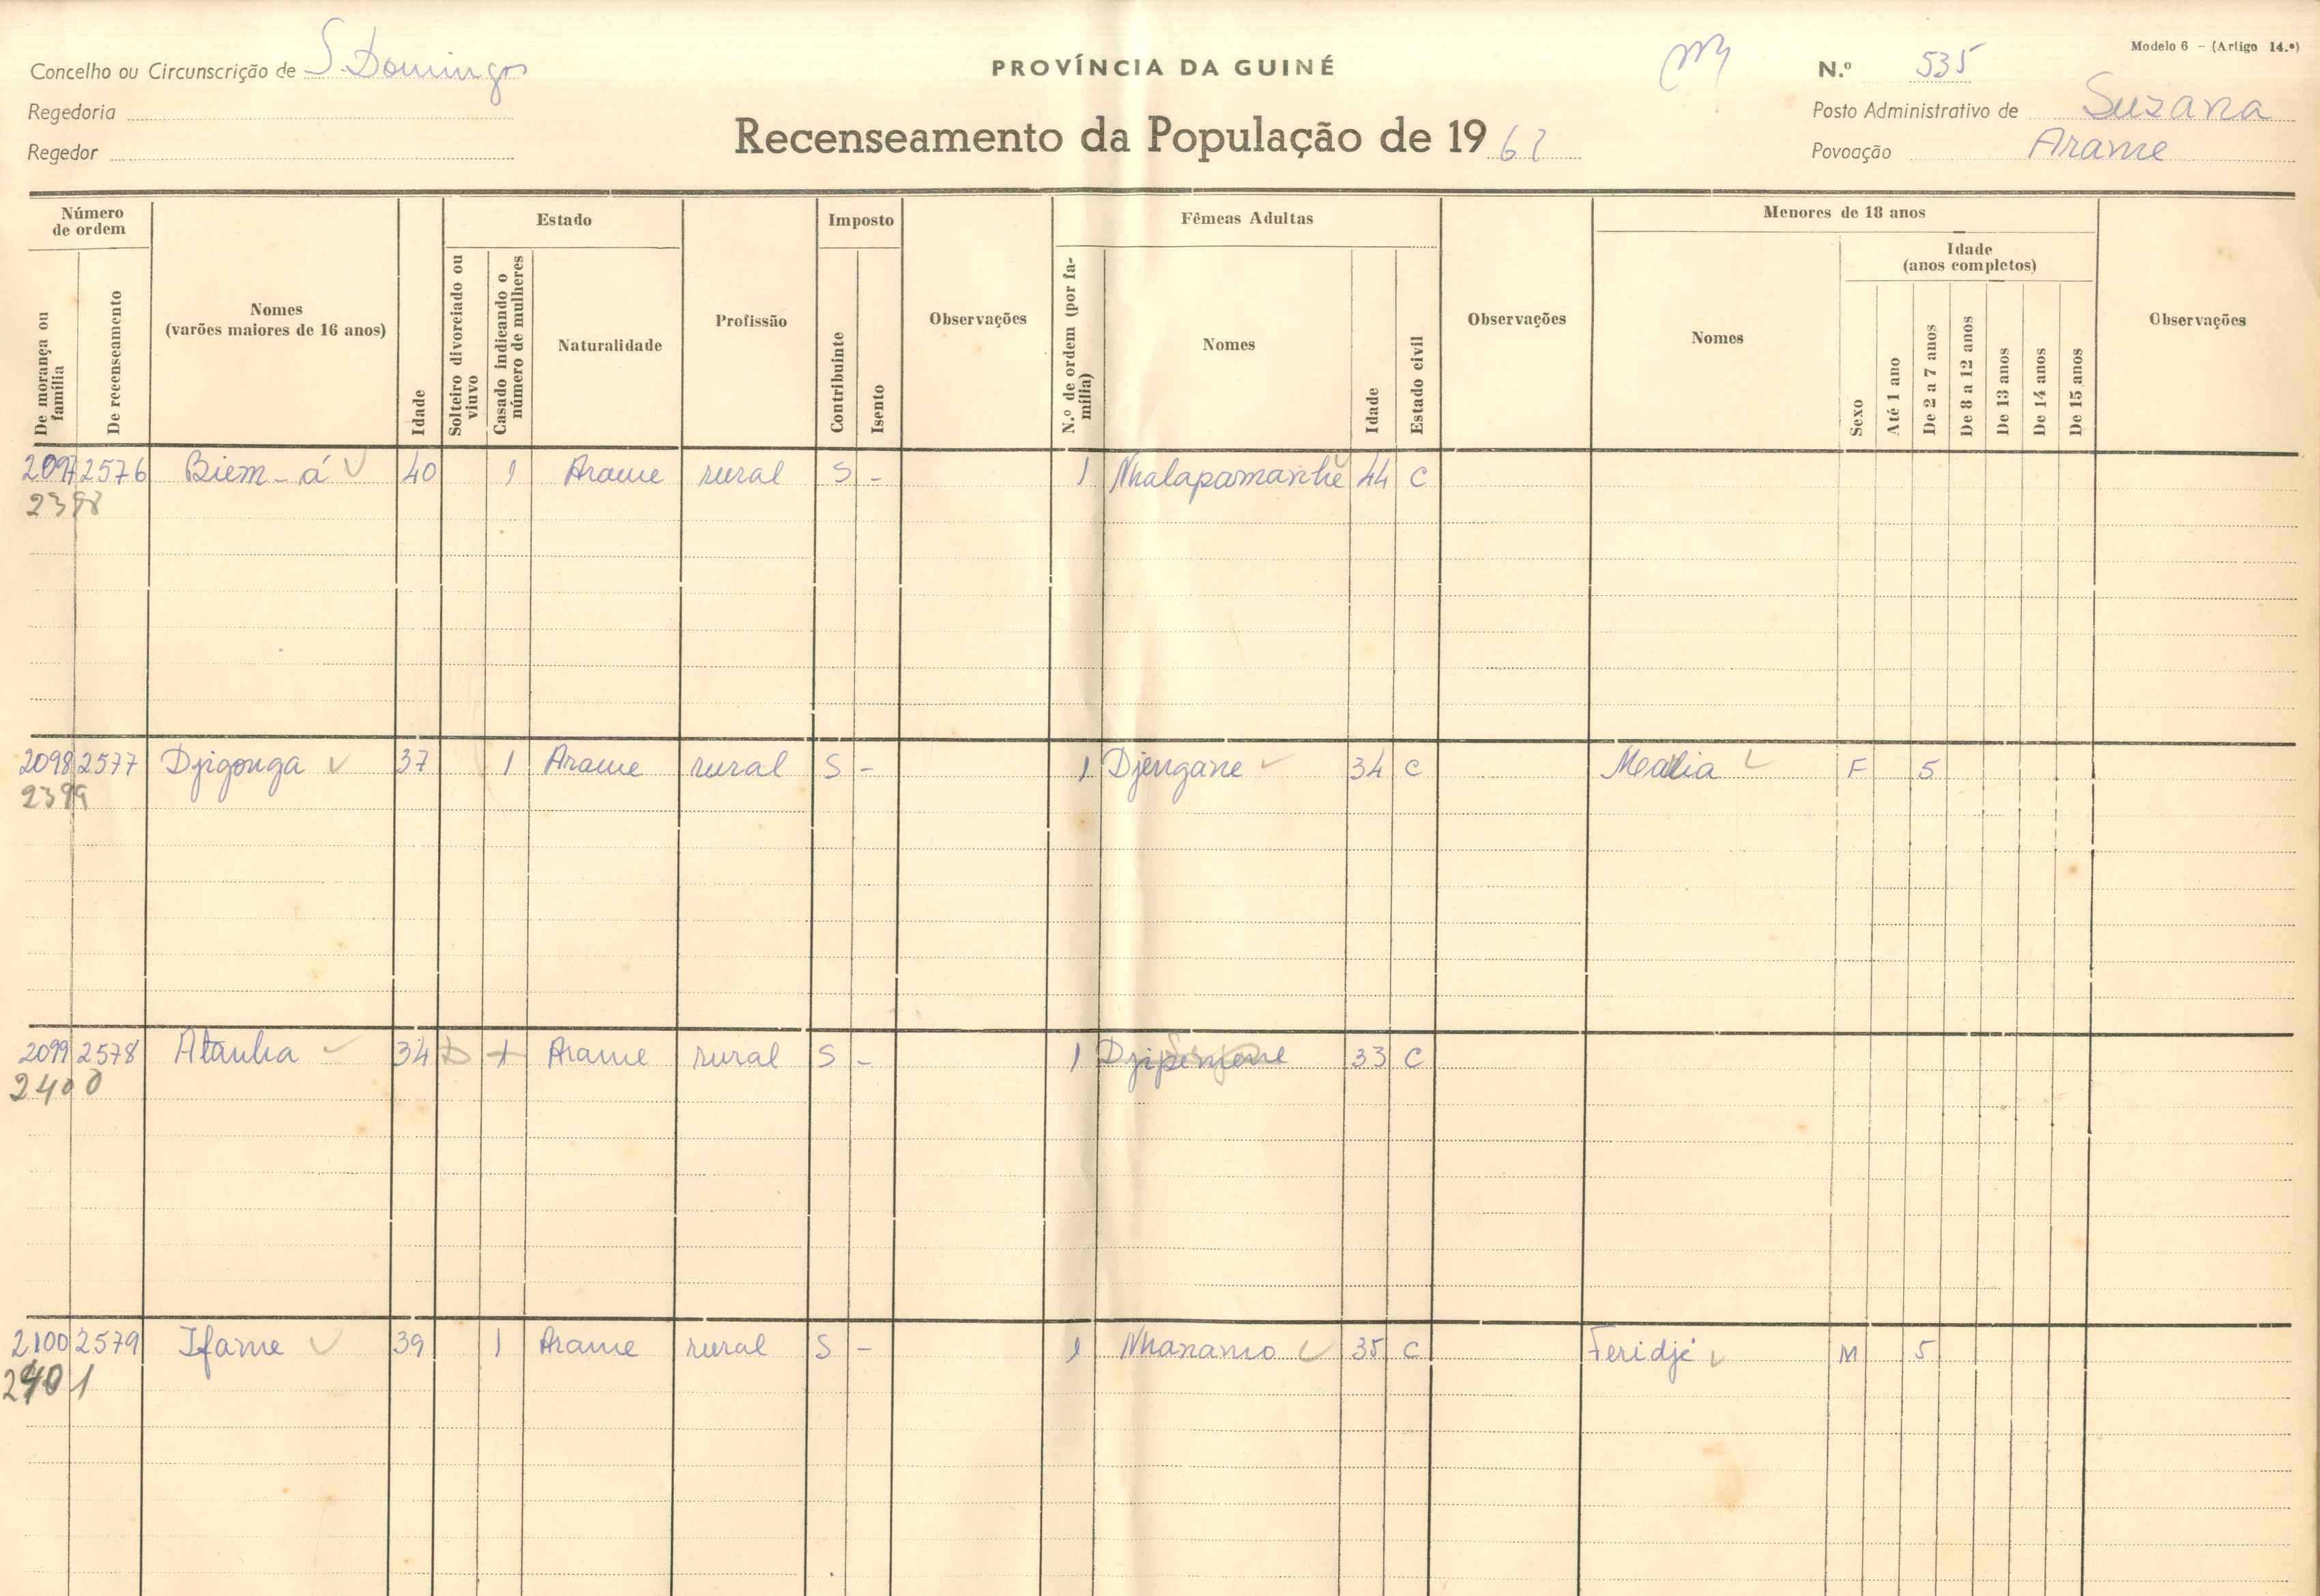 Modelo 6 - (Artigo 14.º)
Concelho ou Circunscrição de S. Domingos
PROVÍNCIA DA GUINÉ
N.º 535
Regedoria
Posto Administrativo de Suzana
Recenseamento da População de 196
Regedor
Povoação Arame
Número de ordem
De morança ou família
De recenseamento
Nomes (varões maiores de 16 anos)
Idade
Estado
Solteiro divorciado ou viuvo
Casado indicando o número de mulheres
Naturalidade
Profissão
Imposto
Contribuinte
Isento
Observações
Fêmeas Adultas
N.º de ordem (por família)
Nomes
Idade
Estado civil
Observações
Menores de 18 anos
Nomes
Sexo
Idade (anos completos)
Até 1 ano
De 2 a 7 anos
De 8 a 12 anos
De 13 anos
De 14 anos
De 15 anos
Observações
2097 2576 Biem-á 40 1 Arame rural S - 1 44 C
2398
2098 2577 Djigonga 37 1 Arame rural S - 1 Djengane 34 C Malia F 5
2399
2099 2578 Atanha 34 D 1 Arame rural S - 1 33 C
2400
2100 2579 Ifame 39 1 Arame rural S - 1 Nhanamo 35 C Feridjé M 5
2401